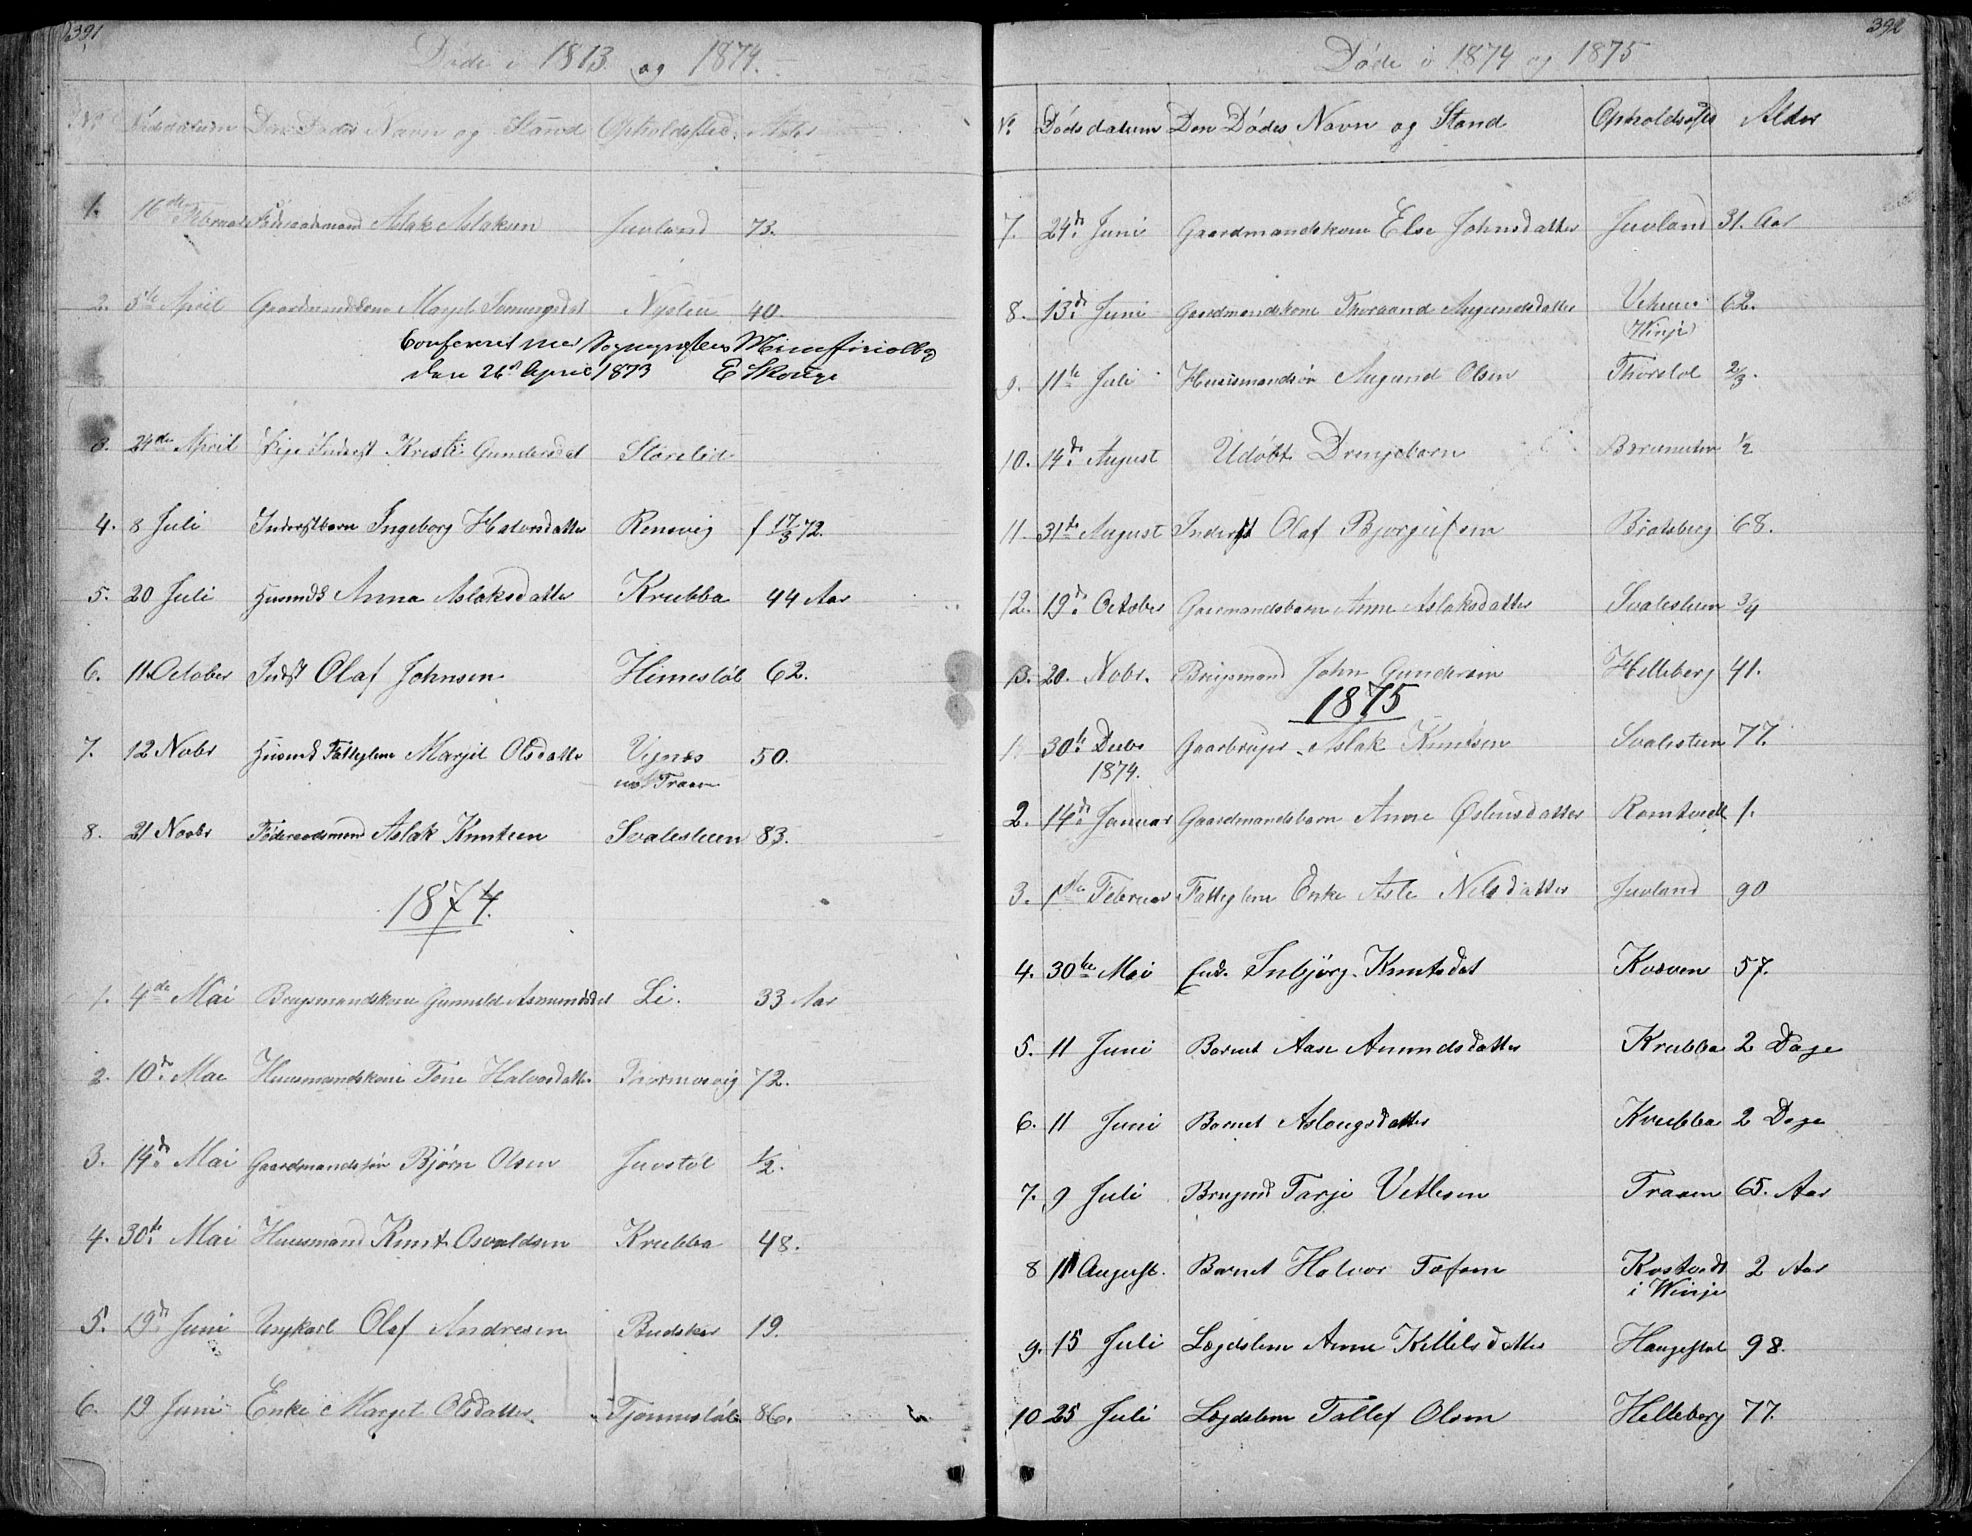 391
Døde i 1873 og 1874.
No Dødsdatum Den Dødes Navn og Stand Opholdssted. Alder
1. 16de Februar Føderaadsmand Aslak Aslaksen Juvland 73.
2. 5te April Gaardmandskone Margit Nystøu 40.
Confereret med
den 26de April 1873 E Skouge
3. 24de April Pige Inderst Kristi Gundersdat Starelid
4. 8 Juli Inderstbarn Ingeborg Halvorsdatter Rensvig f 17/3 72.
5. 20 Juli Husmds Anna Aslaksdatter Krubba 44 Aar
6. 11 October Indst Olaf Johnsen Himestøl 62.
7. 12 Nobr Husmd Fattiglem Margit Olsdatter Vignes 50.
Traaen
8. 21 Novbr Føderaadsmand Aslak Knutsen Svalesteen 83.
1874.
1. 4de Mai Brugsmandskone Gunnild Asmundsdat Li. 33 Aar
2. 10de Mai Huusmandskone Tone Halvorsdatter Thormosvig 72.
3. 14de Mai Gaardmandssøn Bjørn Olsen Juvstøl 1/2.
4. 30te Mai Huusmand Knut Osvaldsen Krubba 48.
5. 19de Juni Ungkarl Olaf Andresen Budsker 19.
6. 19 Juni Enke Marget Olsdatter Tjønnestøl 86.
392
Døde i 1874 og 1875
No Dødsdatum Den Dødes Navn og Stand Opholdssted Alder
7. 24de Juni Gaardmandskone Else Johnsdatter Juvland 31. Aar
8. 13de Juni Gaardmandskone Thoraand Augundsdatter 62.
Winje
9. 11te Juli Huusmandssøn Augund Olsen Thorstøl 2/3.
10. 14de August Udøbt Drengebarn 1/2
11. 31te August Inderst Olaf Bjorgufsen Bratsberg 68.
12. 19de October Anne Aslaksdatter Svalesteen 3/4
13. 20. Nobr. Brugsmand John Gundersen Helleberg 41.
1875
1. 30te Decbr Gaarbruger Aslak Knutsen Svalesteen 77.
1874.
2. 14de Januar Gaardmandsbarn Anne Østensdatter Romtvedt 1.
3. 1ste Februar Fattiglem Enke Asle Nilsdatter Juvland 90
4. 30te Mai Inbjørg Knutsdat Kosven 57.
5. 11 Juni Barnet Aase Amundsdatter Krubba 2 Dage
6. 11 Juni Barnet Aslougsdatter Krubba 2 Dage
7. 9 Juli Brugmd Tarje Vetlesen Traaen 65. Aar
8 11 August. Barnet Halvor Tofsen Kostvedt 2 Aar
i Winje
9. 15 Juli Lægdslem Anne Kittilsdatter Haugestøl 98.
10 25 Juli Lægdslem Tallef Olsen Helleberg 77.